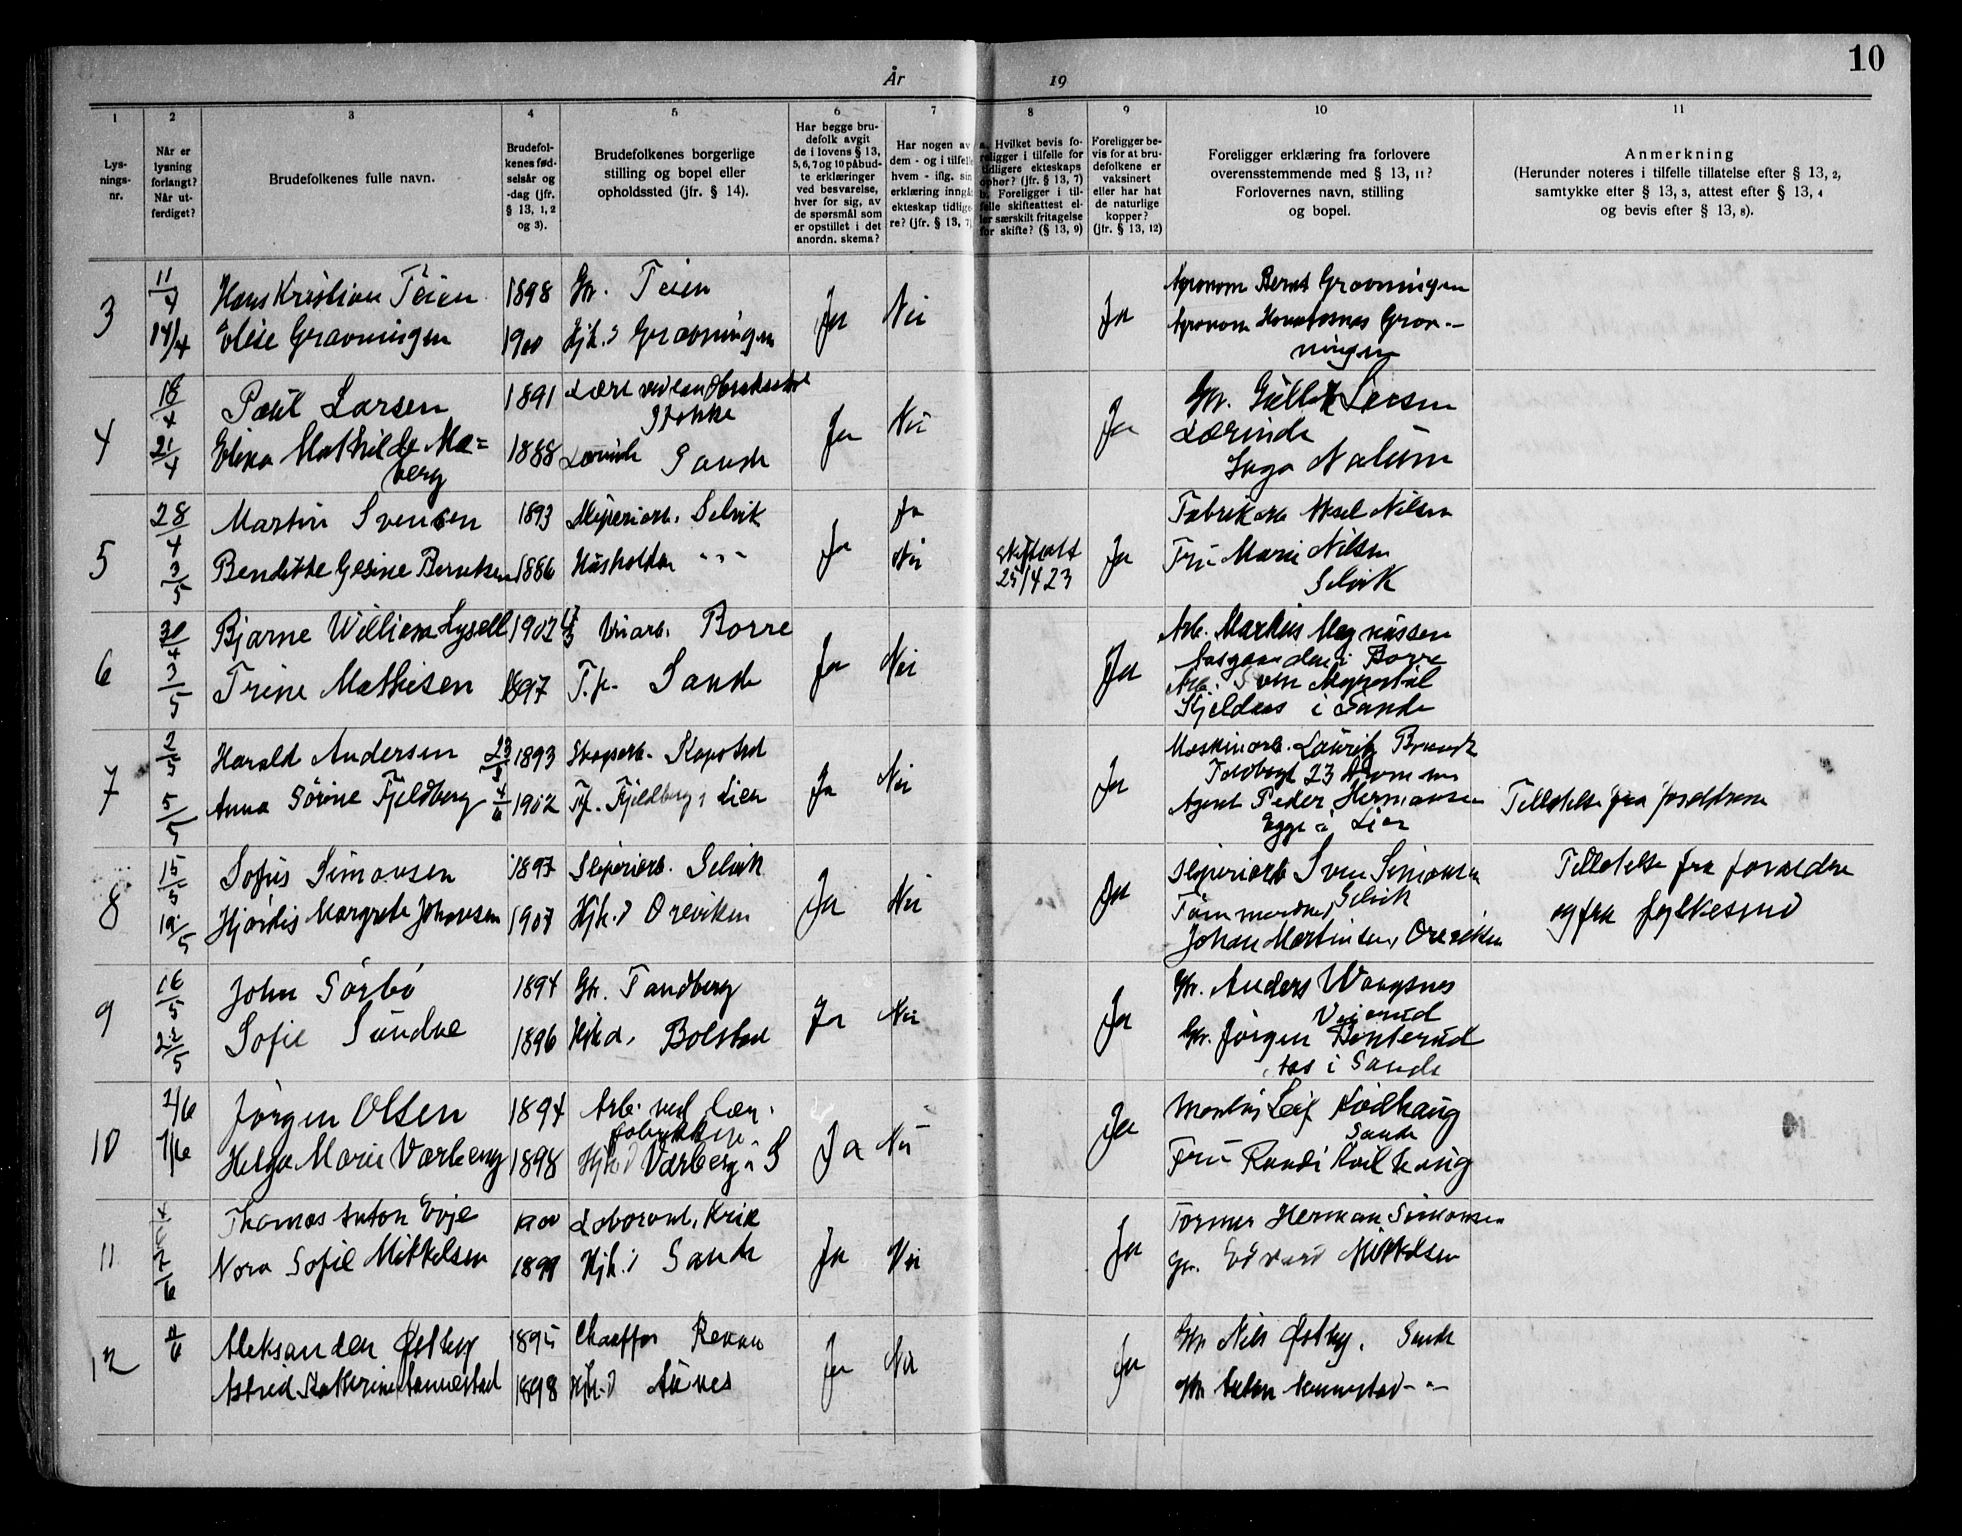 10
År 19
1 2 3 4 5 6 7 8 9 10 11
Lysningsnr.
Når er lysning forlangt? Når utferdiget?
Brudefolkenes fulle navn.
Brudefolkenes fødselsår og -dag (jfr. § 13, 1, 2 og 3).
Brudefolkenes borgerlige stilling og bopel eller opholdssted (jfr. § 14).
Har begge brudefolk avgit de i lovens § 13, 5, 6, 7 og 10 påbudte erklæringer ved besvarelse, hver for sig, av de spørsmål som er opstillet i det anordn. skema?
Har nogen av dem - og i tilfelle hvem - iflg. sin erklæring inngått ekteskap tidligere? (jfr. § 13, 7)
a. Hvilket bevis foreligger i tilfelle for tidligere ekteskaps ophør? (jfr. § 13, 7) b. Foreligger i tilfelle skifteattest eller særskilt fritagelse for skifte? (§ 13, 9)
Foreligger bevis for at brudefolkene er vaksinert eller har hat de naturlige kopper? (jfr. § 13, 12)
Foreligger erklæring fra forlovere overensstemmende med § 13, 11? Forlovernes navn, stilling og bopel.
Anmerkning (Herunder noteres i tilfelle tillatelse efter § 13, 2, samtykke efter § 13, 3, attest efter § 13, 4 og bevis efter § 13, 8).
3 11/4 Hans Kristian Teien 1898 Gbr. Teien Ja Nei Ja Agronom Bernt Gravningen
14/4 Elise Gravningen 1900 Hjh.d Gravningen Agronom Grav-
ningen
4 18/4 Paul Larsen 1891 Lærer Ja Nei Ja Gbr. Larsen
Stokke
21/4 Elina Mathilde Mæ= 1888 Lærerinde Sande Lærerinde
berg Inga Nalum
5 28/4 Martin Svensen 1893 Sliperiarb. Selvik Ja Ja Ja Fabrikarb Aksel Nilsen
3/5 Bendikke Gesine Berntsen 1886 Husholder " Nei Skifteatt Fru Marie Nilsen
25/4 23 Selvik
6 30/4 Bjarne William Lysell 1902 Borre Ja Nei Ja Arb. Markus Magnussen
Aasgaarden i Borre
3/5 Trine Mathisen 1897 T.p. Sande Arb. Sven
Kjeldaas i Sande
7 2/5 Harald Andersen 23/8 1893 Skogsarb. Ja Nei Ja Maskinarb. Lauritz
Toldbogt 23 Drammen
5/5 Anna Sörine Fjeldberg 4/6 1902 Fjeldberg i Lier Agent Peder Hermansen Tilladelse fra foreldrene
Egge i Lier
8 15/5 Sofus Simonsen 1897 Sliperiarb. Selvik Ja Nei Ja Sliperiarb Sven Simonsen Tilladelse fra foreldre
Selvik
19/5 Hjördis Margrete Johansen 1907 Hjh.d Oreviken Tømmermand og fra fylkesmd
Johan Martinsen, Oreviken
9 16/5 John Sörbö 1894 Gbr. Tandberg Ja Nei Ja Gbr. Anders
22/5 Sofie Sundne 1896 Hjh.d. Bolstad Gbr. Jörgen
Aas i Sande
10 2/6 Jörgen Olsen 1894 Arb. ved lær- Ja Nei Ja Leif Kodhaug
fabrikken Sande
7/6 Helga Marie Varberg 1898 Hjh.d Varberg i S Fru Randi
11 Thomas Anton Evje 1900 Laborant, Kria Ja Nei Ja Former Herman Simonsen
7/6 Nora Sofie Mikkelsen 1899 Hjh.d Sande Gbr. Edvard Mikkelsen
12 Aleksander Østby 1895 Chauffør Revau Ja Nei Ja Gbr Nils Østby, Sande
Astrid Kathrine Aannestad 1898 Hjh.d Gbr Anton Aannestad - " -